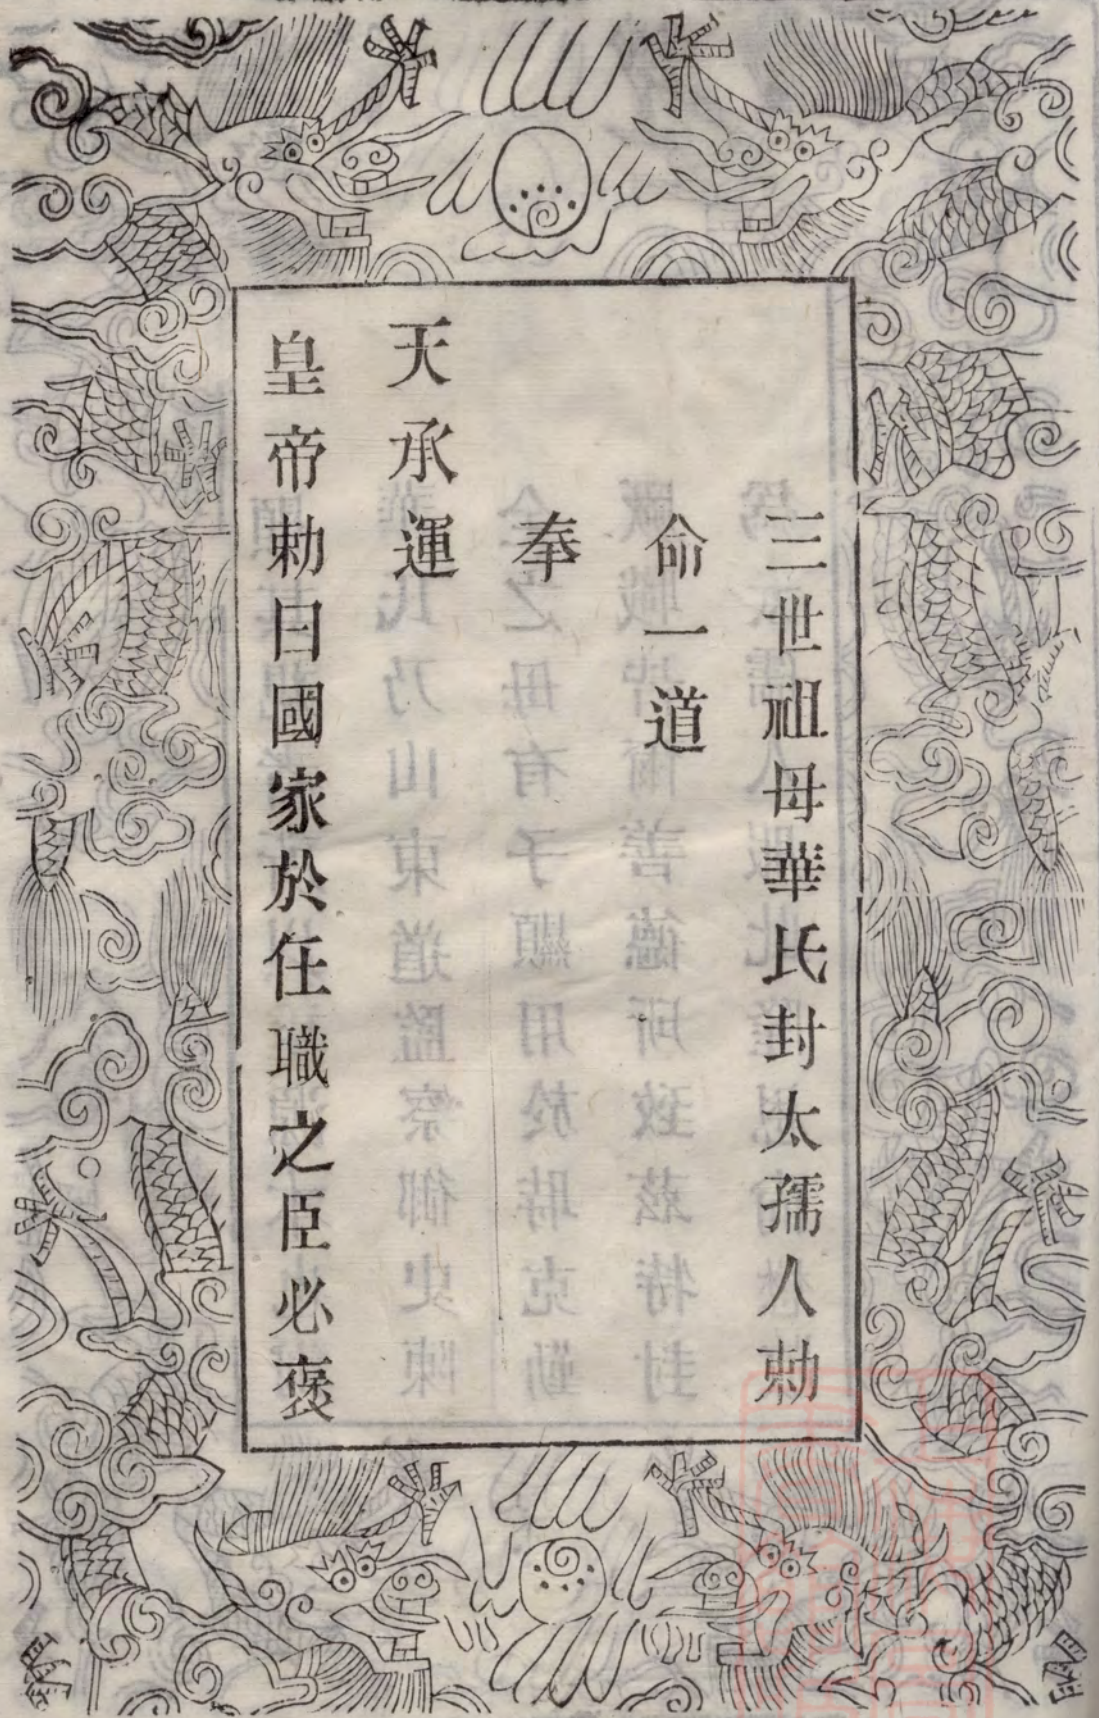 三世祖母華氏封太孺人勅
命一道
奉
天承運
皇帝勅曰國家於任職之臣必褒